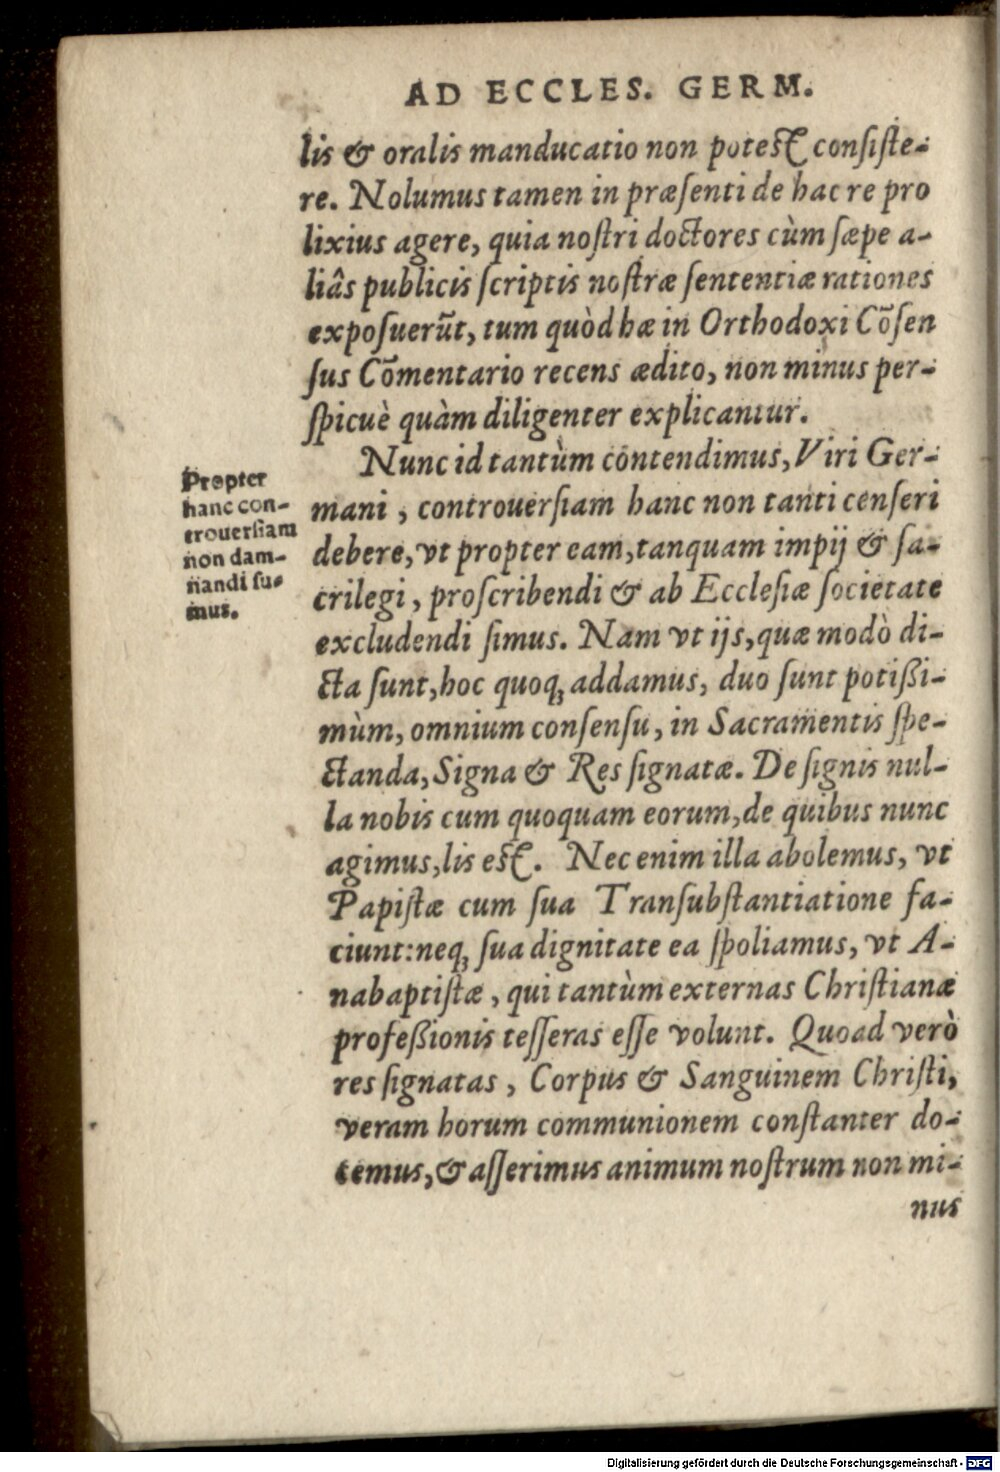 AD ECCLES. GERM.
lis & oralis manducatio non potest consiste-
re. Nolumus tamen in præsenti de hac re pro
lixius agere, quia nostri doctores cùm sæpe a-
liâs publicis scriptis nostræ sententiæ rationes
exposuerũt, tum quòd hæ in Orthodoxi Cõsen
sus Cõmentario recens ædito, non minus per-
spicuè quàm diligenter explicantur.
Nunc id tantùm contendimus, Viri Ger-
mani, controuersiam hanc non tanti censeri
debere, vt propter eam, tanquam impij & sa-
crilegi, proscribendi & ab Ecclesiæ societate
excludendi simus. Nam vt ijs, quæ modò di-
cta sunt, hoc quoq; addamus, duo sunt potißi-
mùm, omnium consensu, in Sacramentis spe-
ctanda, Signa & Res signatæ. De signis nul-
la nobis cum quoquam eorum, de quibus nunc
agimus, lis est. Nec enim illa abolemus, vt
Papistæ cum sua Transubstantiatione fa-
ciunt: neq; sua dignitate ea spoliamus, vt A-
nabaptistæ, qui tantùm externas Christianæ
profeßionis tesseras esse volunt. Quoad verò
res signatas, Corpus & Sanguinem Christi,
veram horum communionem constanter do-
cemus, & asserimus animum nostrum non mi-
nus
Propter
hanc con-
trouersiam
non dam-
nandi su-
mus.
Digitalisierung gefördert durch die Deutsche Forschungsgemeinschaft - DFG